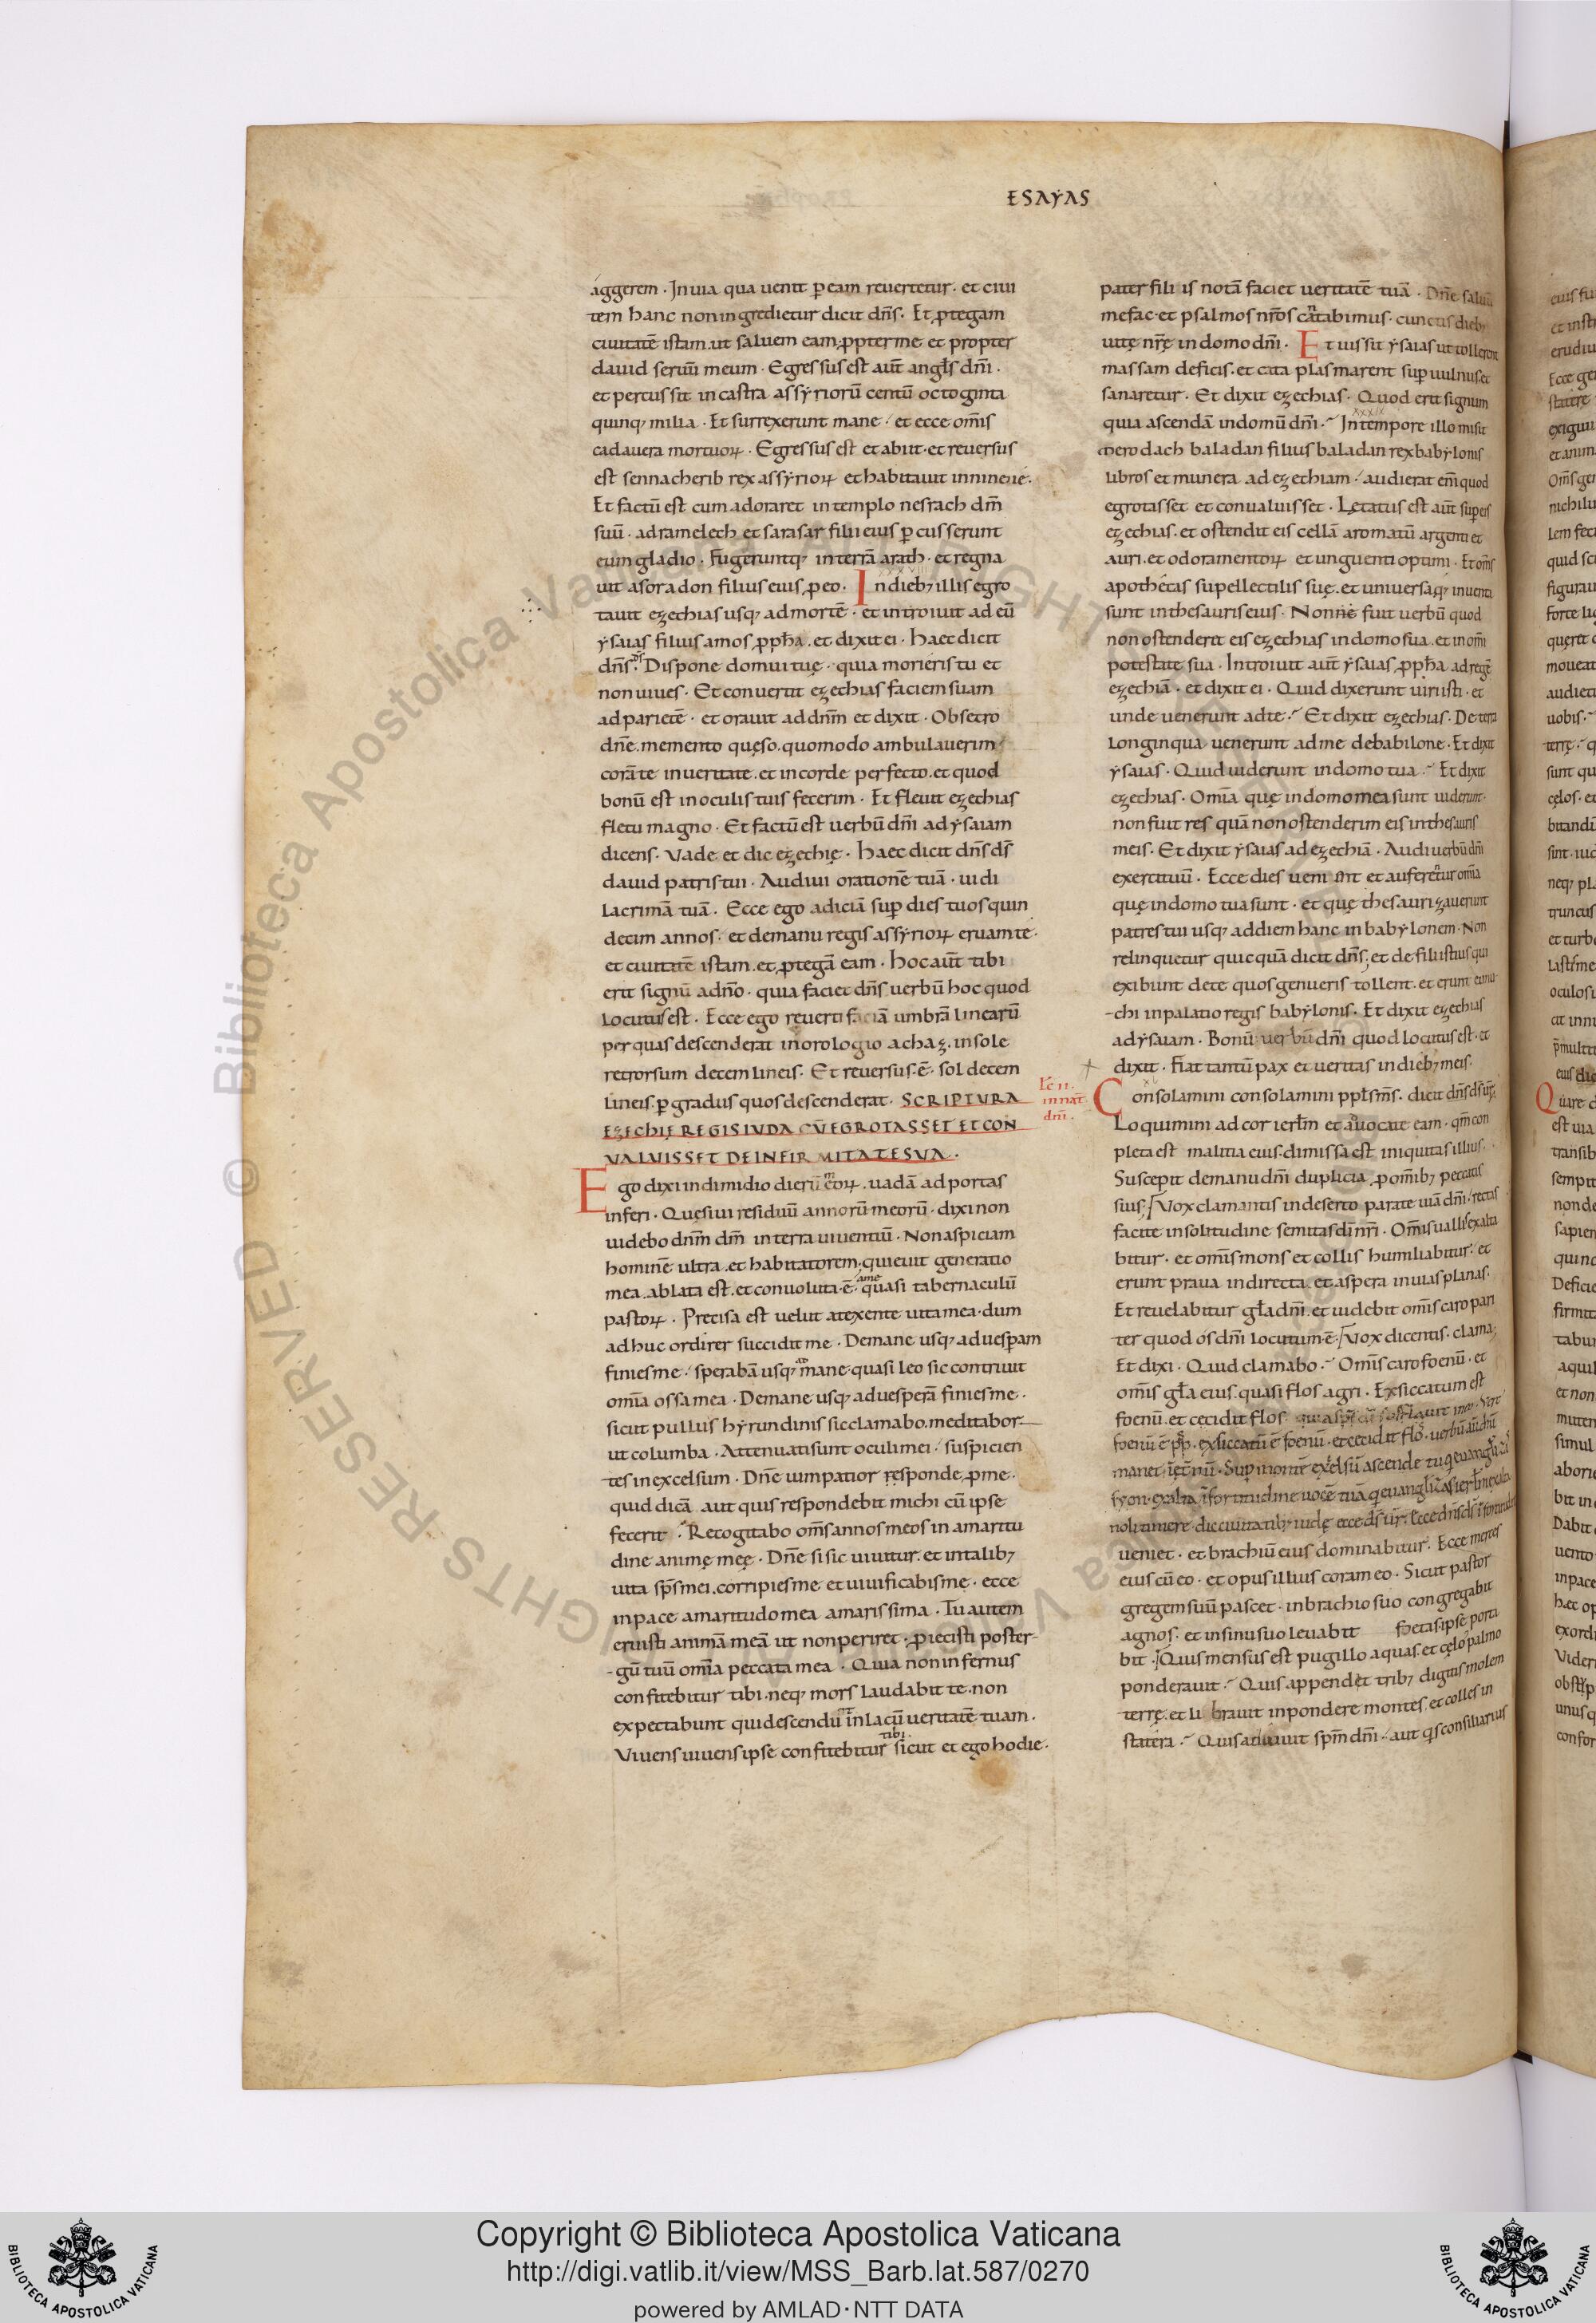 ESAYAS
aggerem · In uia qua uenit ꝑ eam reuertetur · et ciui
tem hanc non ingredietur dicit dñs · Et ꝓtegam
ciuitatē istam ut saluem eam ꝓpter me et propter
dauid seruū meum · Egressus est aut̄ angl̄s dñi ·
et percussit in castra assyriorū centū octoginta
quinq; milia · Et surrexerunt mane · et ecce om̄is
cadauera mortuoꝝ · Egressus est et abiit · et reuersus
est sennacherib rex assyrioꝝ et habitauit in niniue ·
Et factū est cum adoraret in templo nesrach dm̄
suū · adramelech et sarasar filii eius ꝑcusserunt
eum gladio · Fugeruntq; in terrā arath · et regna
uit asoradon filius eius ꝓ eo · In dieb; illis egro
tauit ezechias usq; ad mortē · et introiuit ad eū
ysaias filius amos ꝓph̄a · et dixit ei · Haec dicit
dñs · Dispone domui tuę · quia morieris tu et
non uiues · Et conuertit ezechias faciem suam
ad parietē · et orauit ad dn̄m et dixit · Obsecro
dñe · memento quęso · quomodo ambulauerim
corā te in ueritate · et in corde perfecto · et quod
bonū est in oculis tuis fecerim · Et fleuit ezechias
fletu magno · Et factū est uerbū dñi ad ysaiam
dicens · Vade et dic ezechię · Haec dicit dñs ds̄
dauid patris tui · Audiui orationē tuā · uidi
lacrimā tuā · Ecce ego adiciā suꝑ dies tuos quin
decim annos · et de manu regis assyrioꝝ eruam te ·
et ciuitatē istam · et ꝓtegā eam · Hoc aut̄ tibi
erit signū a dn̄o · quia faciet dñs uerbū hoc quod
locutus est · Ecce ego reuerti faciā umbrā linearū
per quas descenderat in orologio achaz · in sole
retrorsum decem lineis · Et reuersus · ē · sol decem
lineis · ꝑ gradus quos descenderat · SCRIPTVRA
EZECHIĘ REGIS IVDA CV̄ EGROTASSET ET CON
VALVISSET DE INFIRMITATE SVA ·
Ego dixi in dimidio dierū meoꝝ · uadā ad portas
inferi · Quęsiui residuū annorū meorū · dixi non
uidebo dn̄m dm̄ in terra uiuentiū · Non aspiciam
hominē ultra · et habitatorem · quieuit generatio
mea · ablata est · et conuoluta · ē · a me quasi tabernaculū
pastoꝝ · Precisa est uelut a texente uita mea · dum
adhuc ordirer succidit me · De mane usq; ad uesꝑam
finies me · sperabā usq; ad mane · quasi leo sic contriuit
om̄ia ossa mea · De mane usq; ad uesperā finies me ·
sicut pullus hyrundinis sic clamabo · meditabor
ut columba · Attenuati sunt oculi mei · suspicien
tes in excelsum · Dñe uim patior responde ꝓ me ·
quid dicā aut quis respondebit michi cū ipse
fecerit · Recogitabo om̄s annos meos in amaritu
dine animę meę · Dñe si sic uiuitur · et in talib;
uita sp̄s mei · corripies me et uiuificabis me · ecce
in pace amaritudo mea amarissima · Tu autem
eruisti animā meā ut non periret · ꝓiecisti poster
gū tuū om̄ia peccata mea · Quia non infernus
confitebitur tibi · neq; mors laudabit te · non
expectabunt qui descendunt in lacū ueritatē tuam ·
Viuens uiuens ipse confitebitur tibi · sicut et ego hodie ·
pater filiis notā faciet ueritatē tuā · Dñe saluū
me fac · et psalmos nr̄os cantabimus · cunctis dieb;
uitę nr̄ę in domo dñi · Et iussit ysaias ut tollerent
massam de ficis · et cataplasmarent suꝑ uulnus et
sanaretur · Et dixit ezechias · Quod erit signum
quia ascendā in domū dñi · In tempore illo misit
merodach baladan filius baladan rex babylonis
libros et munera ad ezechiam · audierat em̄ quod
egrotasset et conualuisset · Lętatus est aut̄ suꝑ eis
ezechias · et ostendit eis cellā aromatū argenti et
auri · et odoramentoꝝ et unguenti optimi · Et om̄s
apothecas supellectilis suę · et uniuersa quę inuenta
sunt in thesauris eius · Non fuit uerbū quod
non ostenderet eis ezechias in domo sua · et in om̄i
potestate sua · Introiuit aut̄ ysaias ꝓph̄a ad regē
ezechiā · et dixit ei · Quid dixerunt uiri isti · et
unde uenerunt ad te · Et dixit ezechias · De terra
longinqua uenerunt ad me de babilone · Et dixit
ysaias · Quid uiderunt in domo tua · Et dixit
ezechias · Om̄ia quę in domo mea sunt uiderunt ·
non fuit res quā non ostenderim eis in thesauris
meis · Et dixit ysaias ad ezechiā · Audi uerbū dñi
exercituū · Ecce dies uenient et auferentur om̄ia
quę in domo tua sunt · et quę thesaurizauerunt
patres tui usq; ad diem hanc in babylonem · Non
relinquetur quicquā dicit dñs · et de filiis tuis qui
exibunt de te quos genueris tollent · et erunt eunu
chi in palatio regis babylonis · Et dixit ezechias
ad ysaiam · Bonū uerbū dñi quod locutus est · et
dixit · Fiat tantū pax et ueritas in dieb; meis ·
Lēc ii ·
in nat̄
dñi ·
Consolamini consolamini ppl̄s m̄s · dicit dñs ds̄ ur̄ ·
Loquimini ad cor ierl̄m et aduocate eam · qm̄ con
pleta est malitia eius · dimissa est iniquitas illius ·
Suscepit de manu dñi duplicia ꝓ om̄ib; peccatis
suis · Vox clamantis in deserto parate uiā dñi · rectas
facite in solitudine semitas di nr̄i · Om̄is uallis exalta
bitur · et om̄is mons et collis humiliabitur · et
erunt praua in directa · et aspera in uias planas ·
Et reuelabitur gl̄a dñi · et uidebit om̄is caro pari
ter quod os dñi locutum · ē · Vox dicentis · clama ·
Et dixi · Quid clamabo · Om̄is caro foenū · et
om̄is gl̄a eius · quasi flos agri · Exsiccatum est
foenū · et cecidit flos
ueniet · et brachiū eius dominabitur · Ecce merces
eius cū eo · et opus illius coram eo · Sicut pastor
gregem suū pascet · in brachio suo congregabit
agnos · et in sinu suo leuabit foetas ipse porta
bit · Quis mensus est pugillo aquas · et cęlos palmo
ponderauit · Quis appendet trib; digitis molem
terrę · et librauit in pondere montes · et colles in
statera · Quis adiuuit spm̄ dñi · aut qis consiliarius
Copyright © Biblioteca Apostolica Vaticana
http://digi.vatlib.it/view/MSS_Barb.lat.587/0270
powered by AMLAD·NTT DATA
BIBLIOTECA APOSTOLICA VATICANA
BIBLIOTECA APOSTOLICA VATICANA